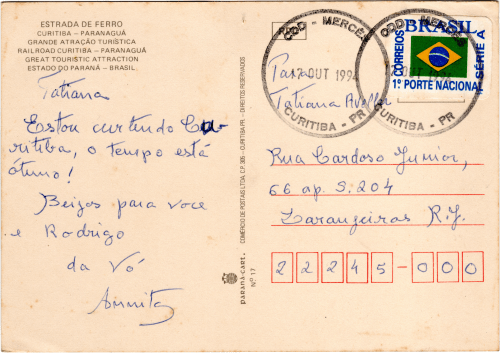 ESTRADA DE FERRO
CURITIBA - PARANAGUÁ
GRANDE ATRAÇÃO TURÍSTICA
RAILROAD CURITIBA - PARANAGUÁ
GREAT TOURISTIC ATTRACTION
ESTADO DO PARANÁ - BRASIL.
Tatiana
Estou curtindo Cu-
ritiba, o tempo está
ótimo!
Beijos para voce
e Rodrigo
da Vó
COMÉRCIO DE POSTAIS LTDA. C.P. 305 - CURITIBA/PR. - DIREITOS RESERVADOS
paraná-cart.
Nº 17
CDD - MERCÊS
17 OUT 1994
CURITIBA - PR
CDD - MERCÊS
CURITIBA - PR
CORREIOS
BRASIL
1º PORTE NACIONAL
SÉRIE A
Para
Tatiana
Rua Cardoso Junior,
66 ap. S. 204
Laranjeiras R.J.
22245-000